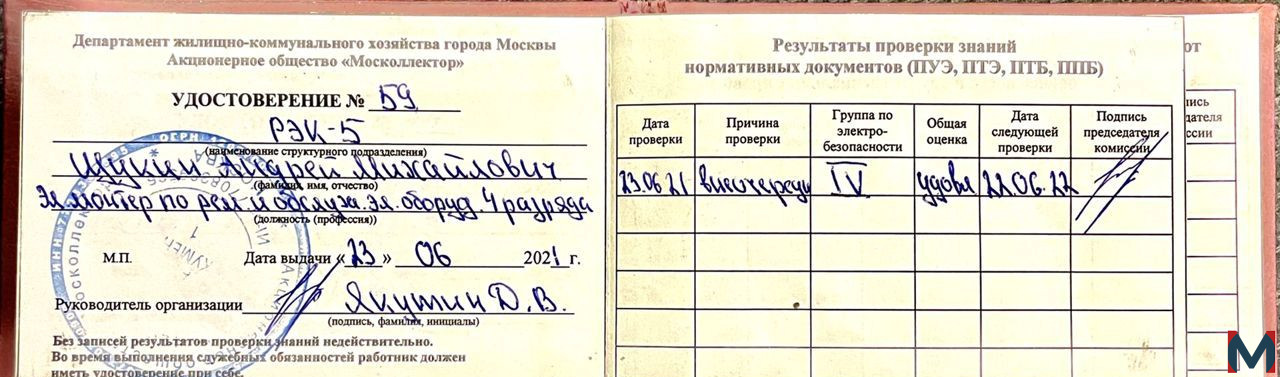 Департамент жилищно-коммунального хозяйства города Москвы
Акционерное общество «Москоллектор»
УДОСТОВЕРЕНИЕ № 59
РЭК-5
(наименование структурного подразделения)
Щукин Андрей Михайлович
(фамилия, имя, отчество)
Эл. монтер по рем и обслуж. эл. оборуд. 4 разряда
(должность (профессия))
М.П. Дата выдачи «23» 06 2021 г.
Руководитель организации Якутин Д.В.
(подпись, фамилия, инициалы)
Без записей результатов проверки знаний недействительно.
Во время выполнения служебных обязанностей работник должен
иметь удостоверение при себе.
Результаты проверки знаний
нормативных документов (ПУЭ, ПТЭ, ПТБ, ППБ)
Дата проверки Причина проверки Группа по электро-безопасности Общая оценка Дата следующей проверки Подпись председателя комиссии
23.06 21 внеочеред IV удовл 22.06.22
М